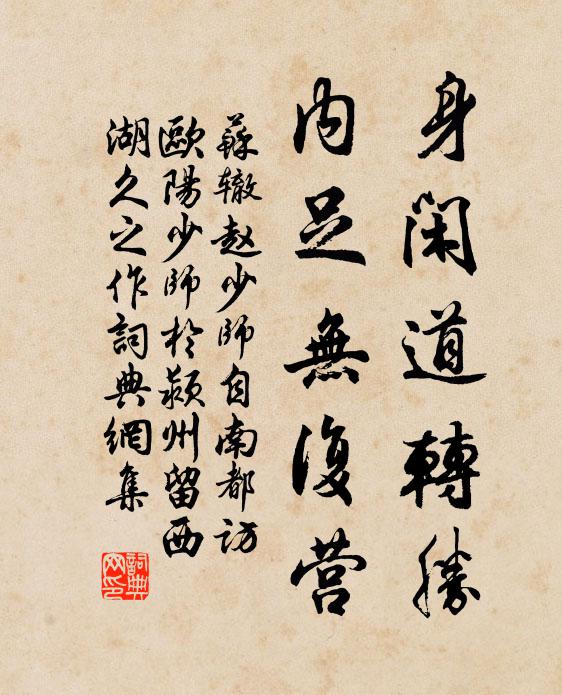 身閑道轉勝
内足無復营
蘇辙赵少師自南都訪
歐陽少師於颍州留西
湖久之作詞典網集
詞典
网印